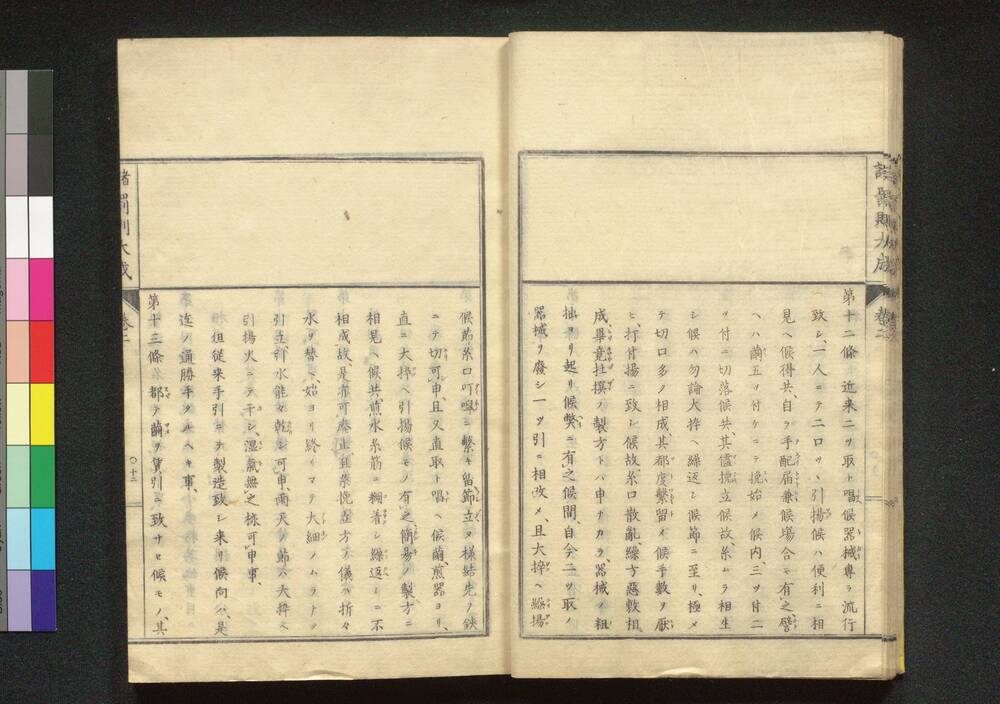 諸罰則大成
卷二
第十二條 近来二ツ取ト唱候器械專ラ流行
致シ、一人ニテ二口ツヽ引揚候ハ便利ニ相
見ヘ候得共、自ラ手配届兼候場合モ有之、譬
ヘハ繭五ツ付ケニテ挽始メ候内、三ツ付二
ツ付ニ切落候共、其儘挽立候故糸ムラ相生
シ候ハ勿論大捽ヘ繰返シ候節ニ至リ、極メ
テ切口多ノ相成其都度繫留メ候手數ヲ厭
ヒ、打付揚ニ致シ候故糸口散亂、繰方惡敷相
成、畢竟拄撰ノ製方トハ申ナカラ器械ノ粗
拙ヨリ起リ候弊ニ有之候間、自今二ツ取ノ
器械ヲ廢シ一ツ引ニ相改メ、且大捽ヘ繰揚
候節糸口叮嚀ニ繫キ留節立タ樣結先ヲ鋏
ニテ切可申、且又直取ト唱ヘ候繭煎器ヨリ、
直ニ大捽ヘ引揚候モノ有之、簡易ノ製方ニ
相見ヘ候共、煎水糸筋ニ糊着シ繰返シニ不
相成故、是亦可廢止、且糸挽立方ノ儀ハ折々
水ヲ替ヘ、始ヨリ終リマテ大細ノムラナク
引立、引水能々乾シ可申、雨天ノ節ハ大捽ヘ
引揚火ニテ干シ、湿氣無之樣可申事、
但従来手引ニテ製造致シ来リ候向ハ、是
迄ノ通勝手タルヘキ事、
第十三條 都テ繭ヲ賃引ニ致サセ候モノ、其
諸罰則大成
卷二
〇十二